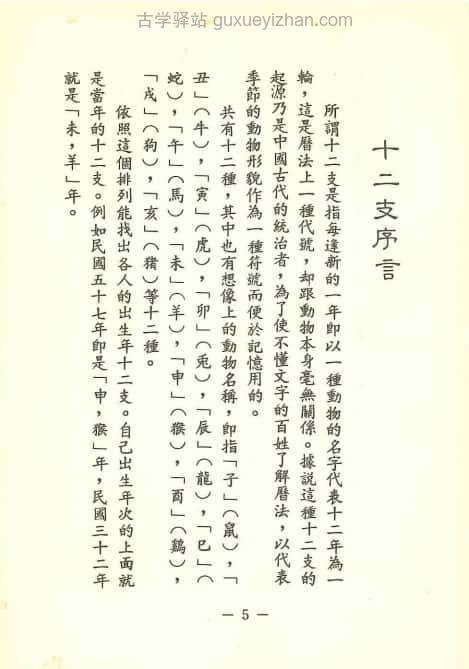 古学驿站 guxueyizhan.com
十二支序言
所謂十二支是指每逢新的一年即以一種動物的名字代表十二年為一
輪，這是曆法上一種代號，却跟動物本身毫無關係。據說這種十二支的
起源乃是中國古代的統治者，為了使不懂文字的百姓了解曆法，以代表
季節的動物形貌作為一種符號而便於記憶用的。
共有十二種，其中也有想像上的動物名稱，即指「子」（鼠），「
丑」（牛），「寅」（虎），「卯」（兎），「辰」（龍），「巳」（
蛇），「午」（馬），「未」（羊），「申」（猴），「酉」（鷄），
「戌」（狗），「亥」（猪）等十二種。
依照這個排列能找出各人的出生年十二支。自己出生年次的上面就
是當年的十二支。例如民國五十七年即是「申，猴」年，民國三十二年
就是「未，羊」年。
— 5 —